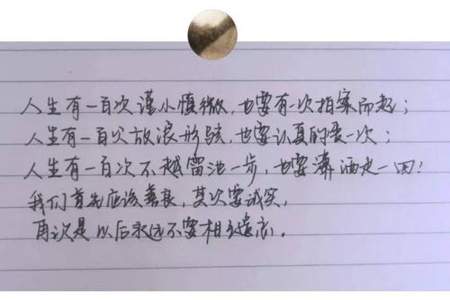 人生有一百次谨小慎微,也要有一次拍案而起;
人生有一百次放浪形骸,也要认真的爱一次;
人生有一百次不越雷池一步,也要潇洒走一回!
我们首先应该善良,其次要诚实,
再次是以后永远不要相互遗忘。